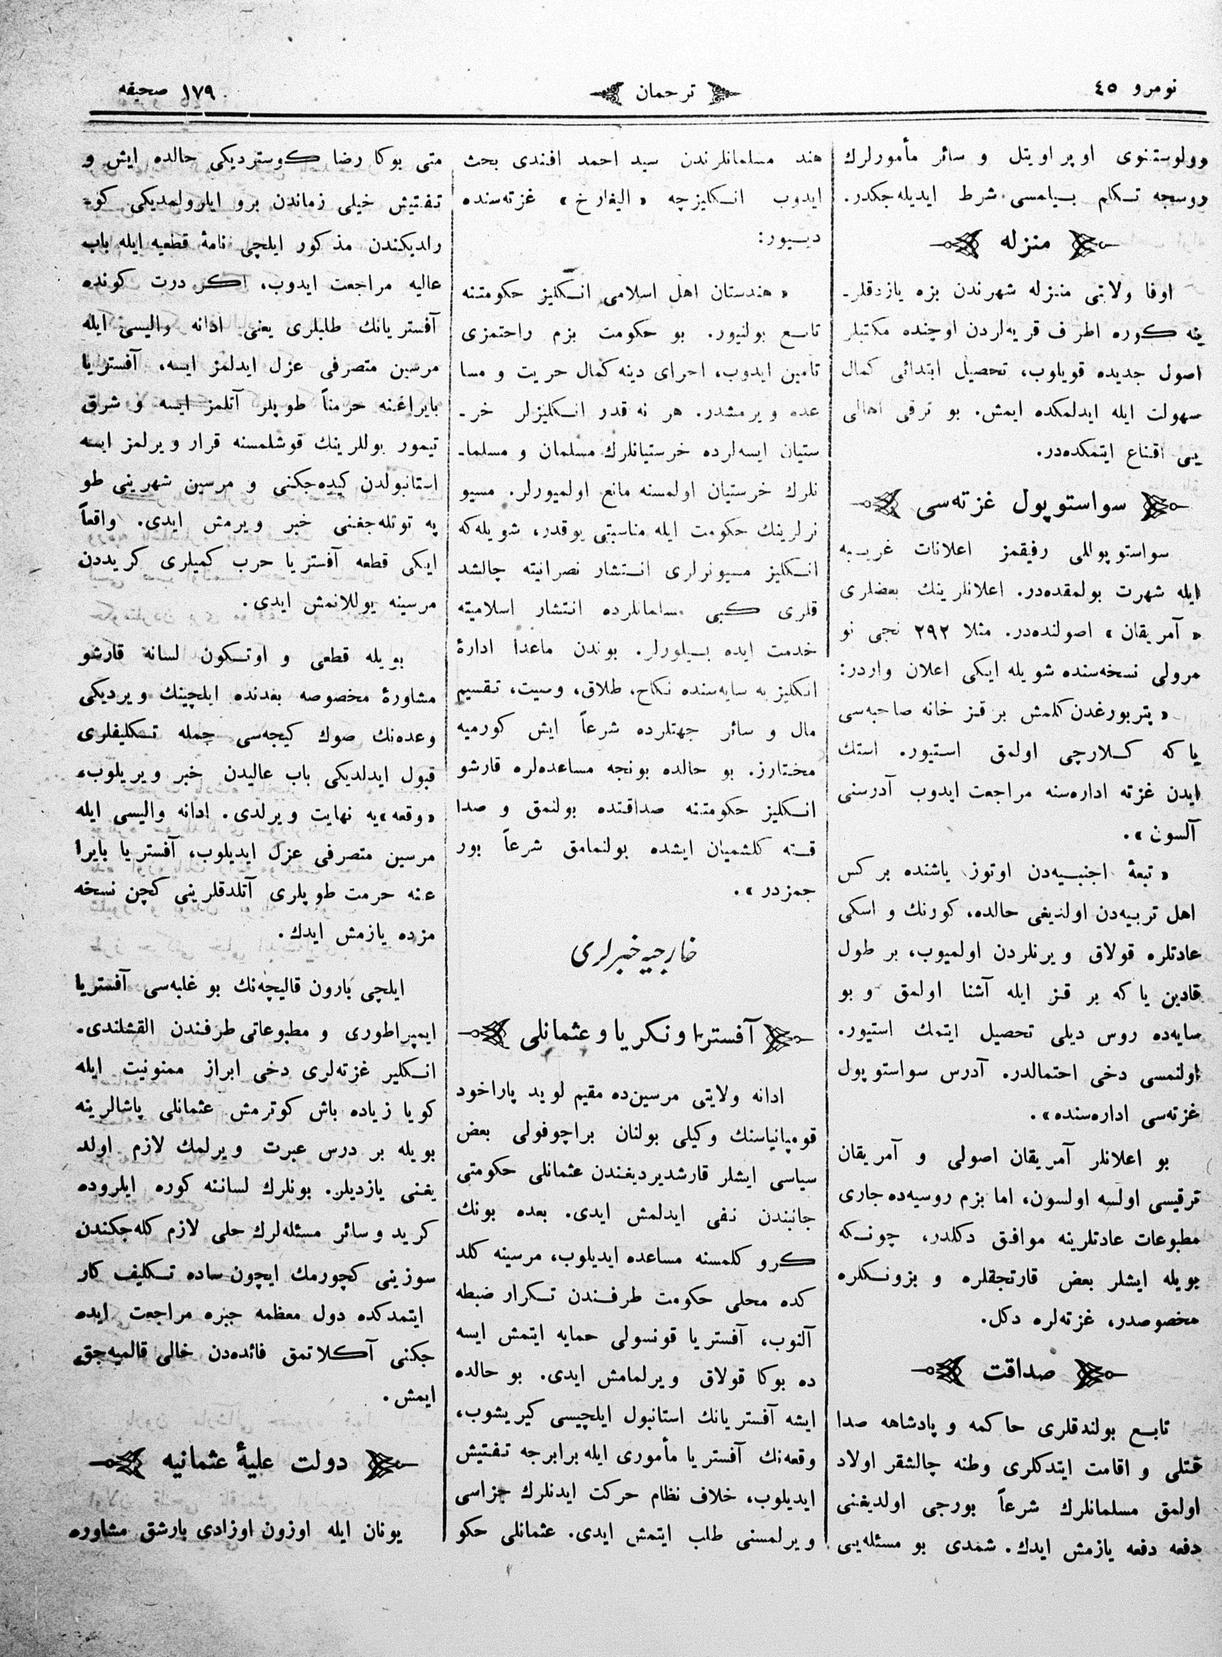 نومرو ٤٥
ترجمان
١٧٩ صحيفه
وولوستنوى اوپراويتل و سائر مأمورلرك
روسجه تكلم بيلمسى شرط ايديله‌جكدر.
منزله
اوفا ولايتى منزله شهرندن بزه يازدقلرـ
ينه كوره اطرف قريه‌لردن اوچنده مكتبلر
اصول جديده قويلوب، تحصيل ابتدائى كمال
سهولت ايله ايدلمكده ايمش. بو ترقى اهالى
يى اقناع ايتمكده‌در.
سواستوپول غزته‌سى
سواستوپوللى رفيقمز اعلانات غريبه
ايله شهرت بولمقده‌در. اعلانلرينك بعضلرى
« آمريقان » اصولنده‌در. مثلا ٢٩٢ نجى نو
مرولى نسخه‌سنده شويله ايكى اعلان واردر:
« پتربورغدن كلمش بر قز خانه صاحبه‌سى
ياكه كلارچى اولمق استيور. استك
ايدن غزته اداره‌سنه مراجعت ايدوب آدرسنى
آلسون ».
« تبعۀ اجنبيه‌دن اوتوز ياشنده بر كس
اهل تربيه‌دن اولديغى حالده، كورنك و اسكى
عادتلره قولاق ويرنلردن اولميوب، بر طول
قادين ياكه بر قز ايله آشنا اولمق و بو
سايه‌ده روس ديلى تحصيل ايتمك استيور.
اولنمسى دخى احتمالدر. آدرس سواستوپول
غزته‌سى اداره‌سنده».
بو اعلانلر آمريقان اصولى و آمريقان
ترقيسى اولسه اولسون، اما بزم روسيه‌ده جارى
مطبوعات عادتلرينه موافق دكلدر، چونكه
بويله ايشلر بعض قارتجقلره و بزونكلره
مخصوصدر، غزته‌لره دكل.
صداقت
تابع بولندقلرى حاكمه و پادشاهه صدا
قتلى و اقامت ايتدكلرى وطنه چالشقر اولاد
اولمق مسلمانلرك شرعاً بورجى اولديغنى
دفعه دفعه يازمش ايدك. شمدى بو مسئله‌يى
هند مسلمانلرندن سيد احمد افندى بحث
ايدوب انكليزچه « اليغارخ » غزته‌سنده
ديور:
« هندستان اهل اسلامى انكليز حكومتنه
تابع بولنيور. بو حكومت بزم راحتمزى
تأمين ايدوب، اجراى دينه كمال حريت و مسا
عده ويرمشدر. هر نه قدر انكليزلر خرـ
ستيان ايسه‌لرده خرستيانلرك مسلمان و مسلماـ
نلرك خرستيان اولمسنه مانع اولميورلر. مسيو
نرلرينك حكومت ايله مناسبتى يوقدر، شويله‌كه
انكليز مسيونرلرى انتشار نصرانيته چالشد
قلرى كبى مسلمانلرده انتشار اسلاميته
خدمت ايده بيلورلر. بوندن ماعدا ادارۀ
انكليزيه سايه‌سنده نكاح، طلاق، وصيت، تقسيم
مال و سائر جهتلرده شرعاً ايش كورميه
مختارز. بو حالده بونجه مساعده‌لره قارشو
انكليز حكومتنه صداقتده بولنمق و صدا
قته كلشميان ايشده بولنمامق شرعاً بور
جمزدر ».
خارجيه خبرلرى
آفستريا ونكريا و عثمانلى
ادانه ولايتى مرسين‌ده مقيم لويد پاراخود
قومپانياسنك وكيلى بولنان براچوفولى بعض
سياسى ايشلر قارشديرديغندن عثمانلى حكومتى
جانبندن نفى ايدلمش ايدى. بعده بونك
كرو كلمسنه مساعده ايديلوب، مرسينه كلد
كده محلى حكومت طرفندن تكرار ضبطه
آلنوب، آفستريا قونسولى حمايه ايتمش ايسه
ده بوكا قولاق ويرلمامش ايدى. بو حالده
ايشه آفستريانك استانبول ايلچيسى كيريشوب،
وقعه‌نك آفستريا مأمورى ايله برابرجه تفتيش
ايديلوب، خلاف نظام حركت ايدنلرك جزاسى
ويرلمسنى طلب ايتمش ايدى. عثمانلى حكو
متى بوكا رضا كوسترديكى حالده ايش و
تفتيش خيلى زماندن برو ايلرولمديكى كوـ
رلديكندن مذكور ايلچى نامۀ قطعيه ايله باب
عاليه مراجعت ايدوب، اكر درت كونده
آفستريانك طلبلرى يعنى ادانه واليسى ايله
مرسين متصرفى عزل ايدلمز ايسه، آفستريا
بايراغنه حرمتاً طوپلر آتلمز ايسه و شرق
تيمور يوللرينك قوشلمسنه قرار ويرلمز ايسه
استانبولدن كيده‌جكنى و مرسين شهرينى طو
په توتله‌جغنى خبر ويرمش ايدى. واقعاً
ايكى قطعه آفستريا حرب كميلرى كريددن
مرسينه يوللانمش ايدى.
بويله قطعى و اوتكون لسانه قارشو
مشاورۀ مخصوصه بعدنده ايلچينك ويرديكى
وعده‌نك صوك كيجه‌سى جمله تكليفلرى
قبول ايدلديكى باب عاليدن خبر ويريلوب،
«وقعه»يه نهايت ويرلدى. ادانه واليسى ايله
مرسين متصرفى عزل ايديلوب، آفستريا بايرا
غنه حرمت طوپلرى آتلدقلرينى كچن نسخه
مزده يازمش ايدك.
ايلچى بارون قاليچه‌نك بو غلبه‌سى آفستريا
ايمپراطورى و مطبوعاتى طرفندن القشلندى.
انكليز غزته‌لرى دخى ابراز ممنونيت ايله
كويا زياده باش كوترمش عثمانلى پاشالرينه
بويله بر درس عبرت ويرلمك لازم اولد
يغنى يازديلر. بونلرك لسانته كوره ايلروده
كريد و سائر مسئله‌لرك حلى لازم كله‌جكندن
سوزينى كچورمك ايچون ساده تكليف كار
ايتمدكده دول معظمه جبره مراجعت ايده
جكنى آكلاتمق فائده‌دن خالى قالميه‌جق
ايمش.
دولت عليۀ عثمانيه
يونان ايله اوزون اوزادى بارشق مشاوره